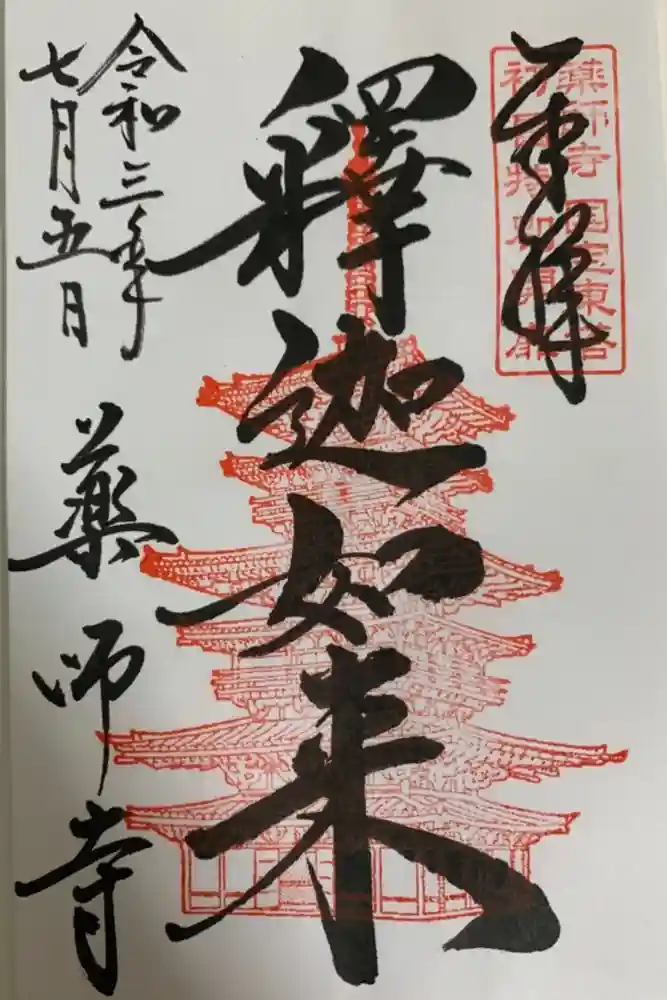 奉拝
薬師寺 国宝東塔
初層特別開扉
釋迦如来
令和三年
七月五日
薬師寺